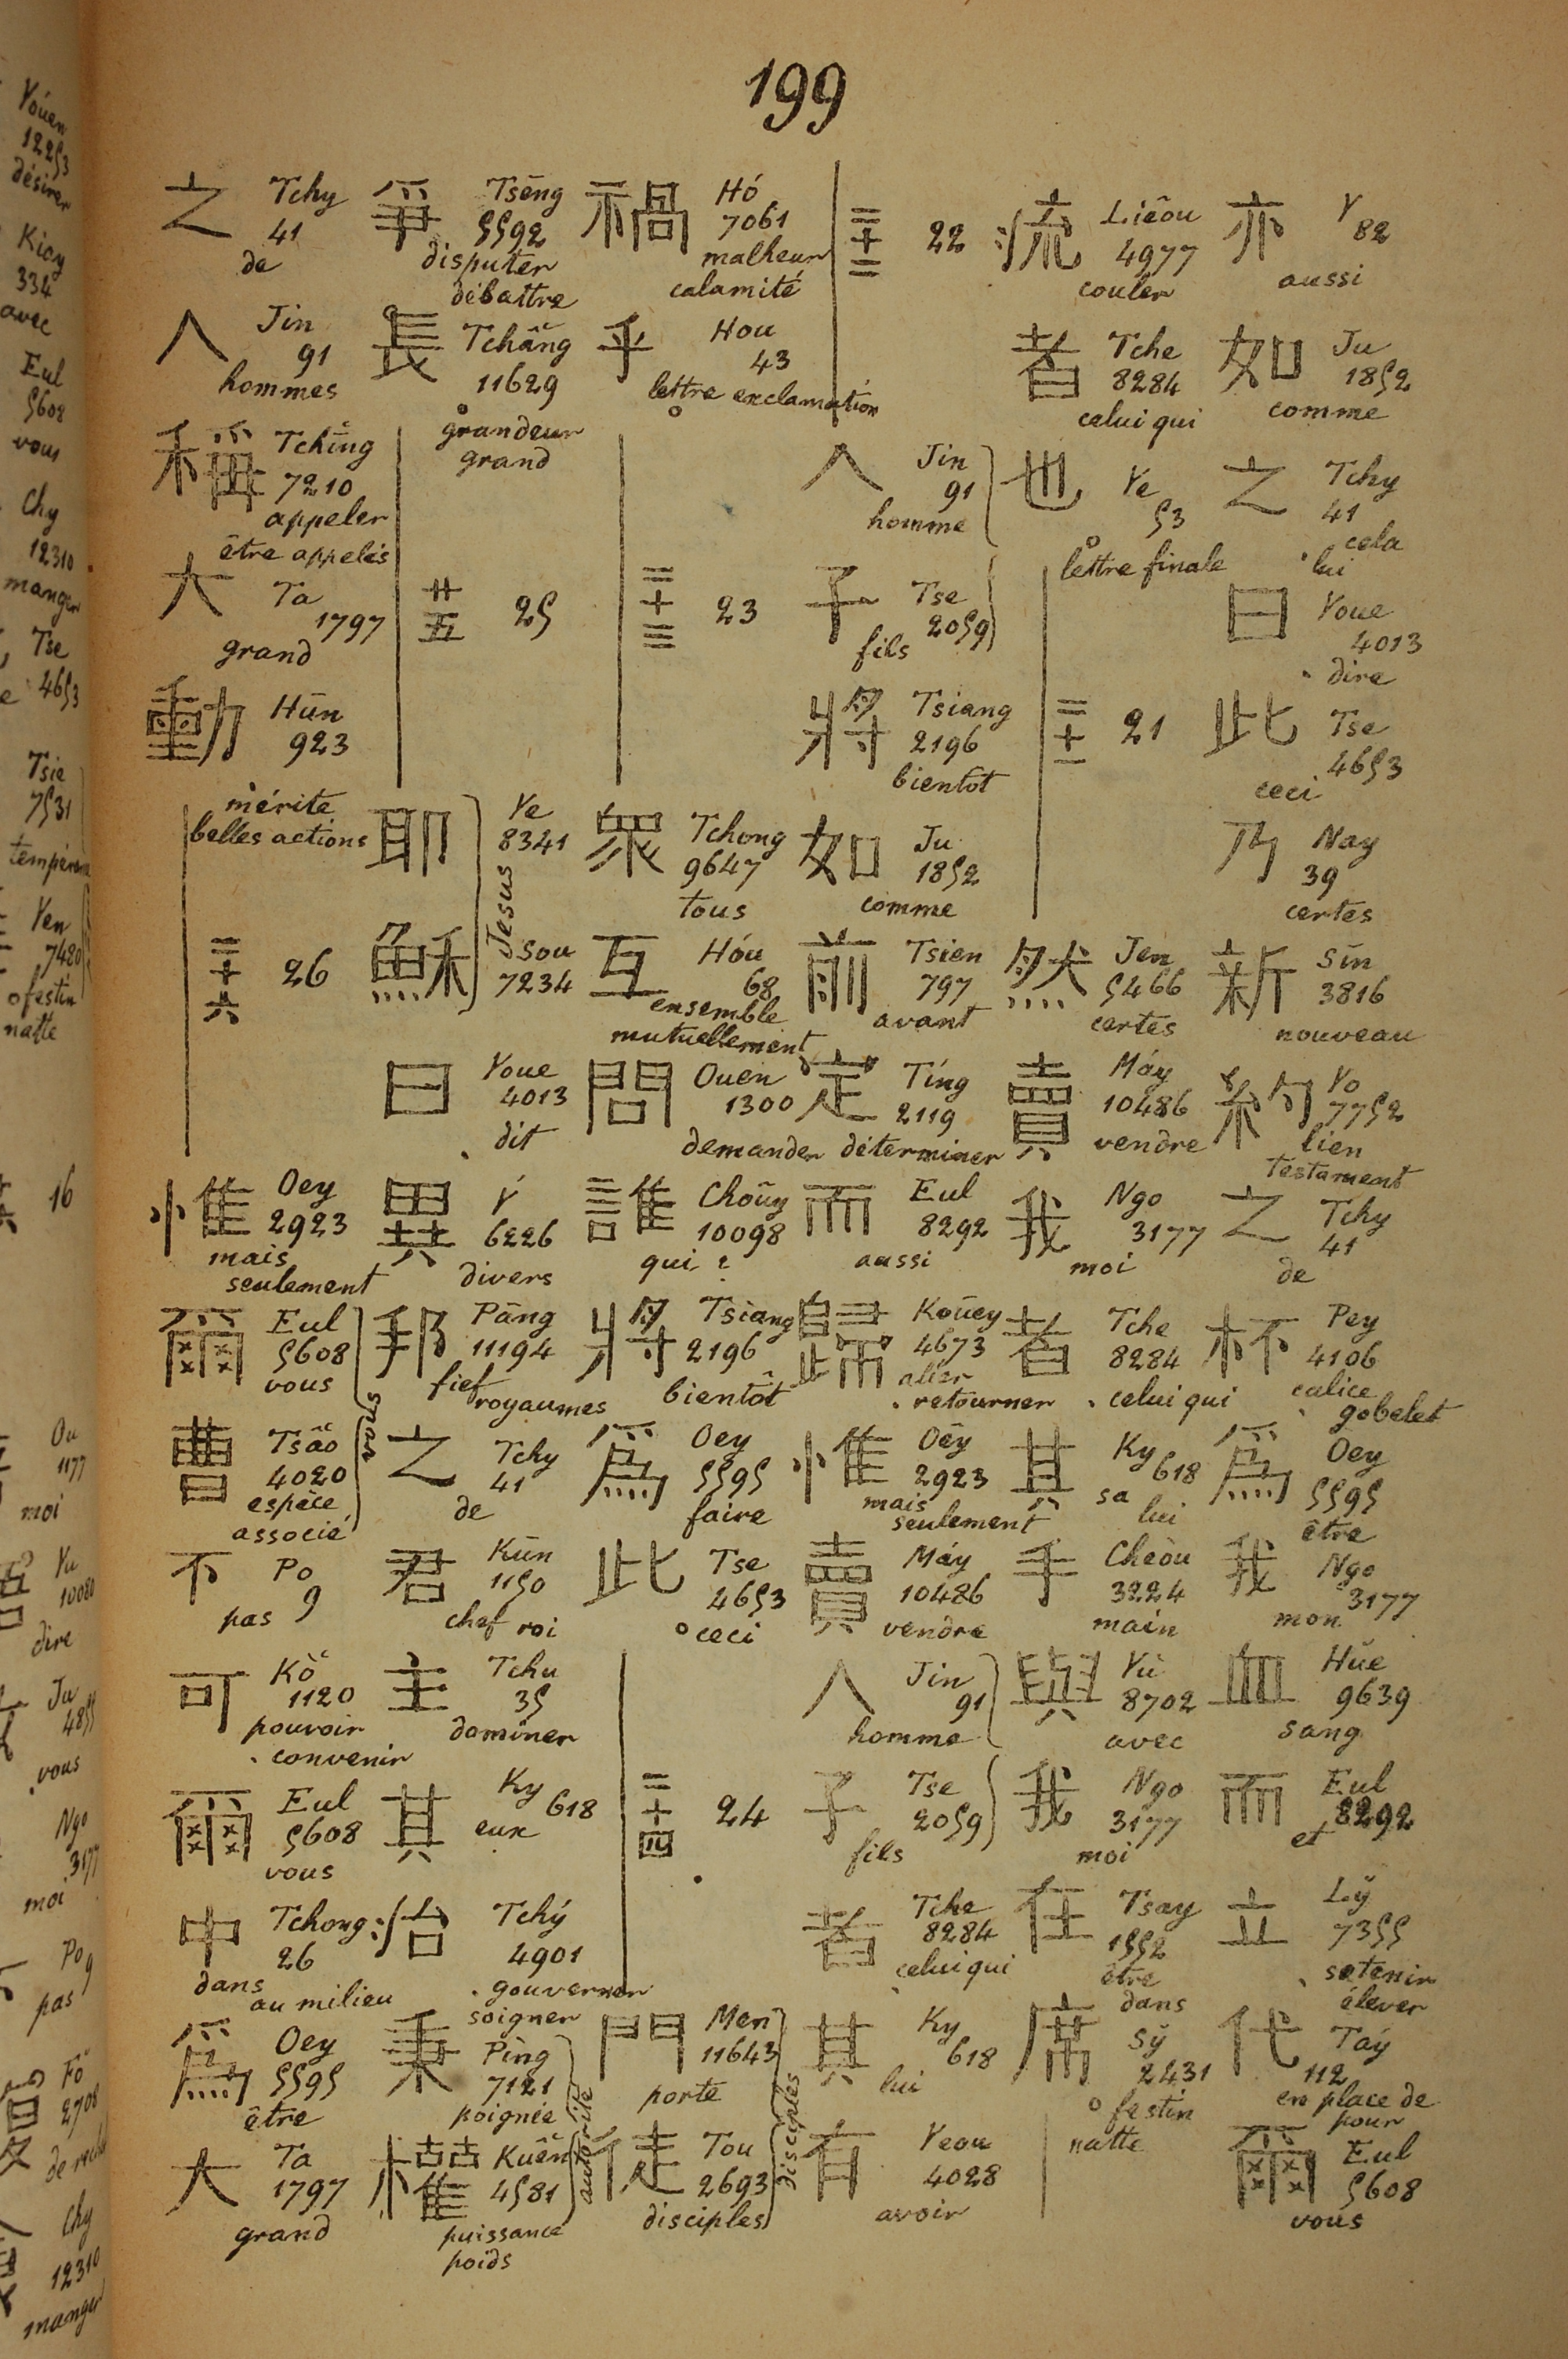 199
亦 Y 82 aussi
如 Ju 1852 comme
之 Tchy 41 cela lui
曰 Youe 4013 dire
此 Tse 4653 ceci
乃 Nay 39 certes
新 Sīn 3816 nouveau
約 Yo 7752 lien testament
之 Tchy 41 de
杯 Pey 4106 calice gobelet
爲 Oey 5595 être
我 Ngo 3177 mon
血 Hüe 9639 sang
而 Eul 8292 et
立 Lÿ 7355 élever
代 Táy 112 en place de pour
爾 Eul 5608 vous
流 Liêou 4977 couler
者 Tche 8284 celui qui
也 Ye 53 lettre finale
二十一 21
然 Jen 5466 certes
賣 Máy 10486 vendre
我 Ngo 3177 moi
者 Tche 8284 celui qui
其 Ky 618 sa lui
手 Cheòu 3224 main
與 Yù 8702 avec
我 Ngo 3177 moi
在 Tsay 1552 être dans
席 Sÿ 2431 festin natte
二十二 22
人 Jin 91 homme
子 Tse 2059 fils
將 Tsiang 2196 bientot
如 Ju 1852 comme
前 Tsien 797 avant
定 Tíng 2119 déterminer
而 Eul 8292 aussi
歸 Kouey 4673 aller retourner
惟 Oêy 2923 mais seulement
賣 Máy 10486 vendre
人 Jin 91 homme
子 Tse 2059 fils
者 Tche 8284 celui qui
其 Ky 618 lui
有 Yeou 4028 avoir
禍 Hó 7061 malheur calamité
乎 Hou 43 lettre exclamation
二十三 23
眾 Tchong 9647 tous
互 Hóu 68 ensemble mutuellement
問 Ouen 1300 demander
誰 Choûy 10098 qui ?
將 Tsiang 2196 bientôt
爲 Oey 5595 faire
此 Tse 4653 ceci
二十四 24
門 Men 11643 porte
徒 Tou 2693 disciples
disciples
爭 Tsēng 5592 disputer débattre
長 Tchâng 11629 grandeur grand
廿五 25
耶 Ye 8341
穌 Sou 7234
Jesus
曰 Youe 4013 dit
異 Ý 6226 divers
邦 Pāng 11194 fief royaumes
之 Tchy 41 de
君 Kūn 1150 chef roi
主 Tchu 35 dominer
其 Ky 618 eux
治 Tchý 4901 gouverner soigner
秉 Pìng 7121 poignée
權 Kuên 4581 puissance poids
autorité
之 Tchy 41 de
人 Jin 91 hommes
稱 Tchîng 7210 appeler être appelés
大 Ta 1797 grand
動 Hūn 923 mérite belles actions
二十六 26
惟 Oey 2923 mais seulement
爾 Eul 5608 vous
曹 Tsâo 4020 espèce associé
vous
不 Po 9 pas
可 Kǒ 1120 pouvoir convenir
爾 Eul 5608 vous
中 Tchong 26 dans au milieu
爲 Oey 5595 être
大 Ta 1797 grand
Yóuen
12253
désirer
334
avec
Eul
5608
vous
Chy
12310
manger
Tse
4653
Tsie
7531
Yen
7480
festin
natte
16
1177
moi
10080
dire
Ju
vous
Ngo
3177
moi
Po 9
pas
Fŏ
2708
Chy
12310
manger